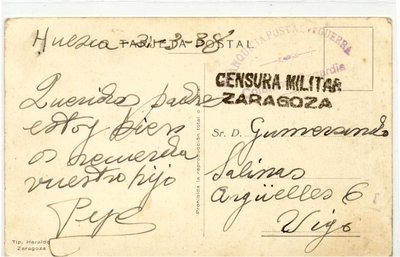 Huesca 31-3-38
TARJETA POSTAL
FRANQUICIA POSTAL GUERRA
CENSURA MILITAR
ZARAGOZA
Queridos padres
estoy bien
os recuerda
vuestro hijo
Pepe
Sr. D. Gumersindo
Salinas
Argüelles 6
Vigo
Prohibida la reproducción total o
Tip. Heraldo
Zaragoza